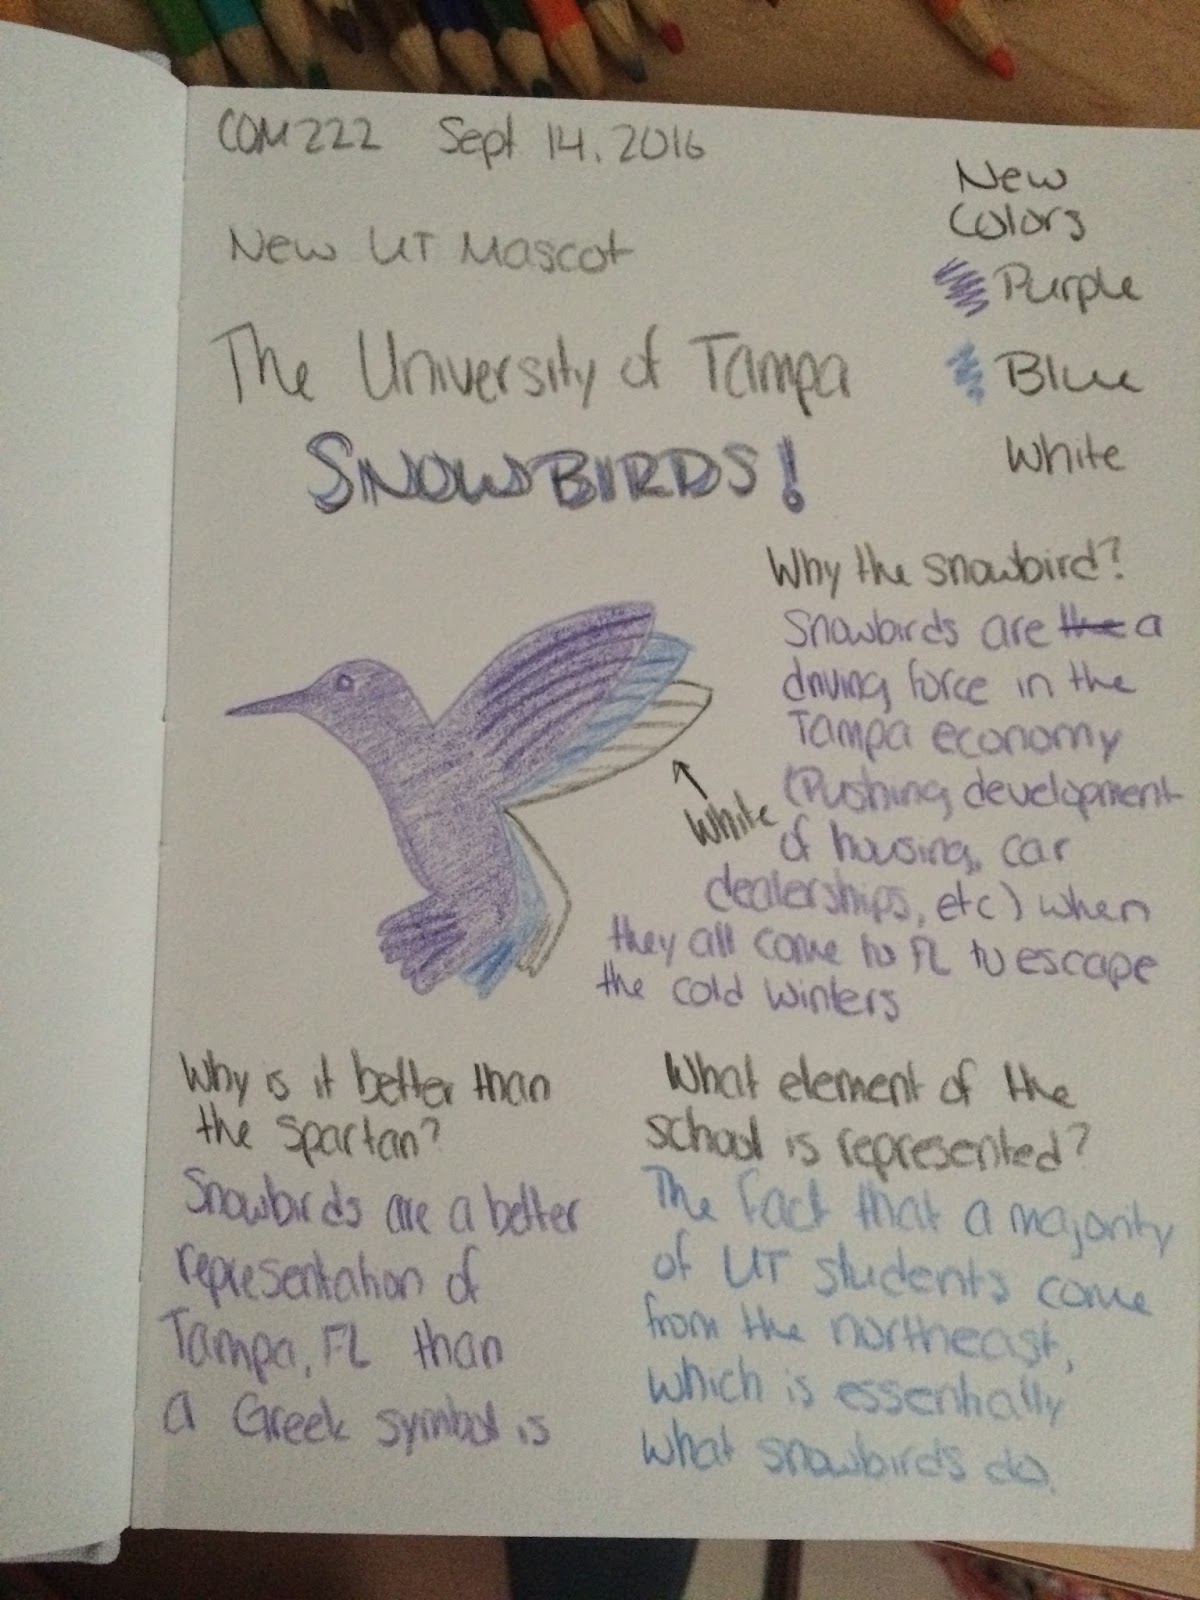 COM222 Sept 14, 2016
New UT Mascot
The University of Tampa
SNOWBIRDS!
New
Colors
Purple
Blue
White
Why the snowbird?
Snowbirds are the a
driving force in the
Tampa economy
(Pushing development
of housing, car
dealerships, etc) when
they all come to FL to escape
the cold winters
White
Why is it better than
the Spartan?
Snowbirds are a better
representation of
Tampa, FL than
a Greek symbol is
What element of the
school is represented?
The fact that a majority
of UT students come
from the northeast,
which is essentially
what snowbirds do.